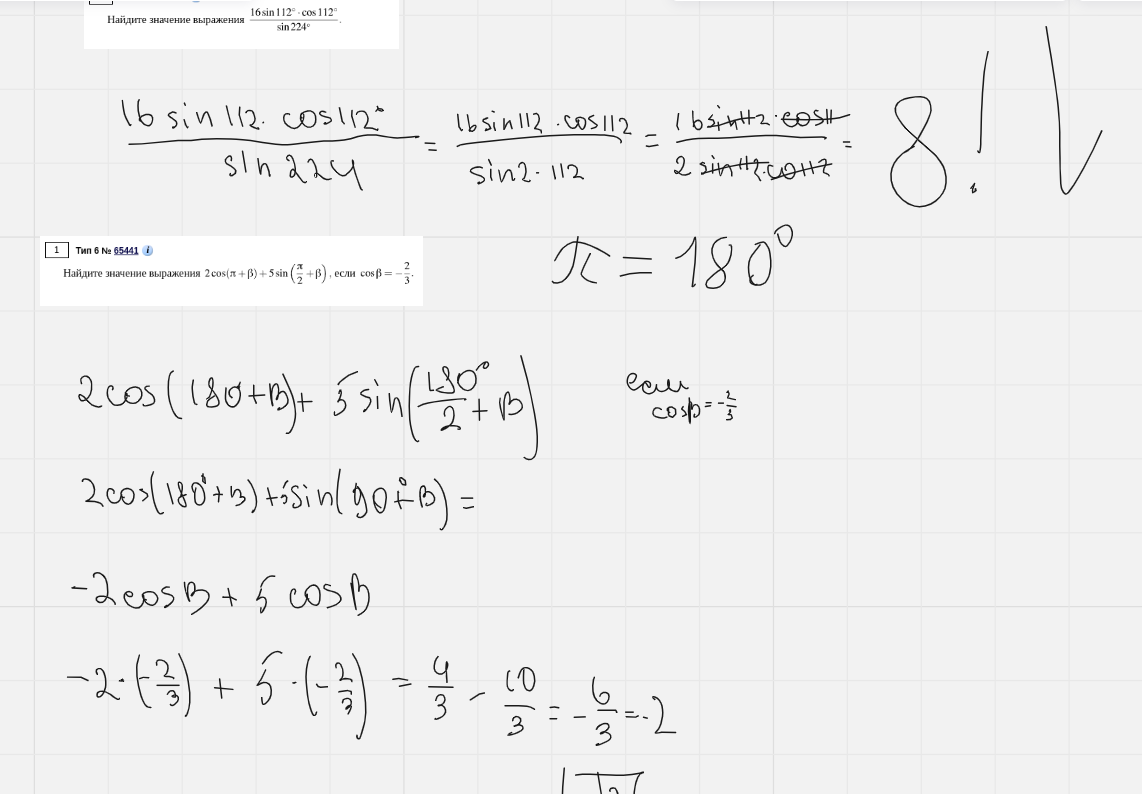 Найдите значение выражения 16 sin 112° · cos 112° / sin 224°.
16 sin 112 · cos 112° / sin 224 = 16 sin 112 · cos 112 / sin 2 · 112 = 16 sin 112 · cos 11 / 2 sin 112 · cos 112 = 8 !
1 Тип 6 № 65441 i
π = 180°
Найдите значение выражения 2 cos(π + β) + 5 sin(π/2 + β), если cos β = −2/3.
2 cos (180 + β) + 5 sin (180°/2 + β) если cos β = -2/3
2 cos(180° + β) + 5 sin(90° + β) =
-2 cos β + 5 cos β
-2 · (-2/3) + 5 · (-2/3) = 4/3 - 10/3 = -6/3 = -2